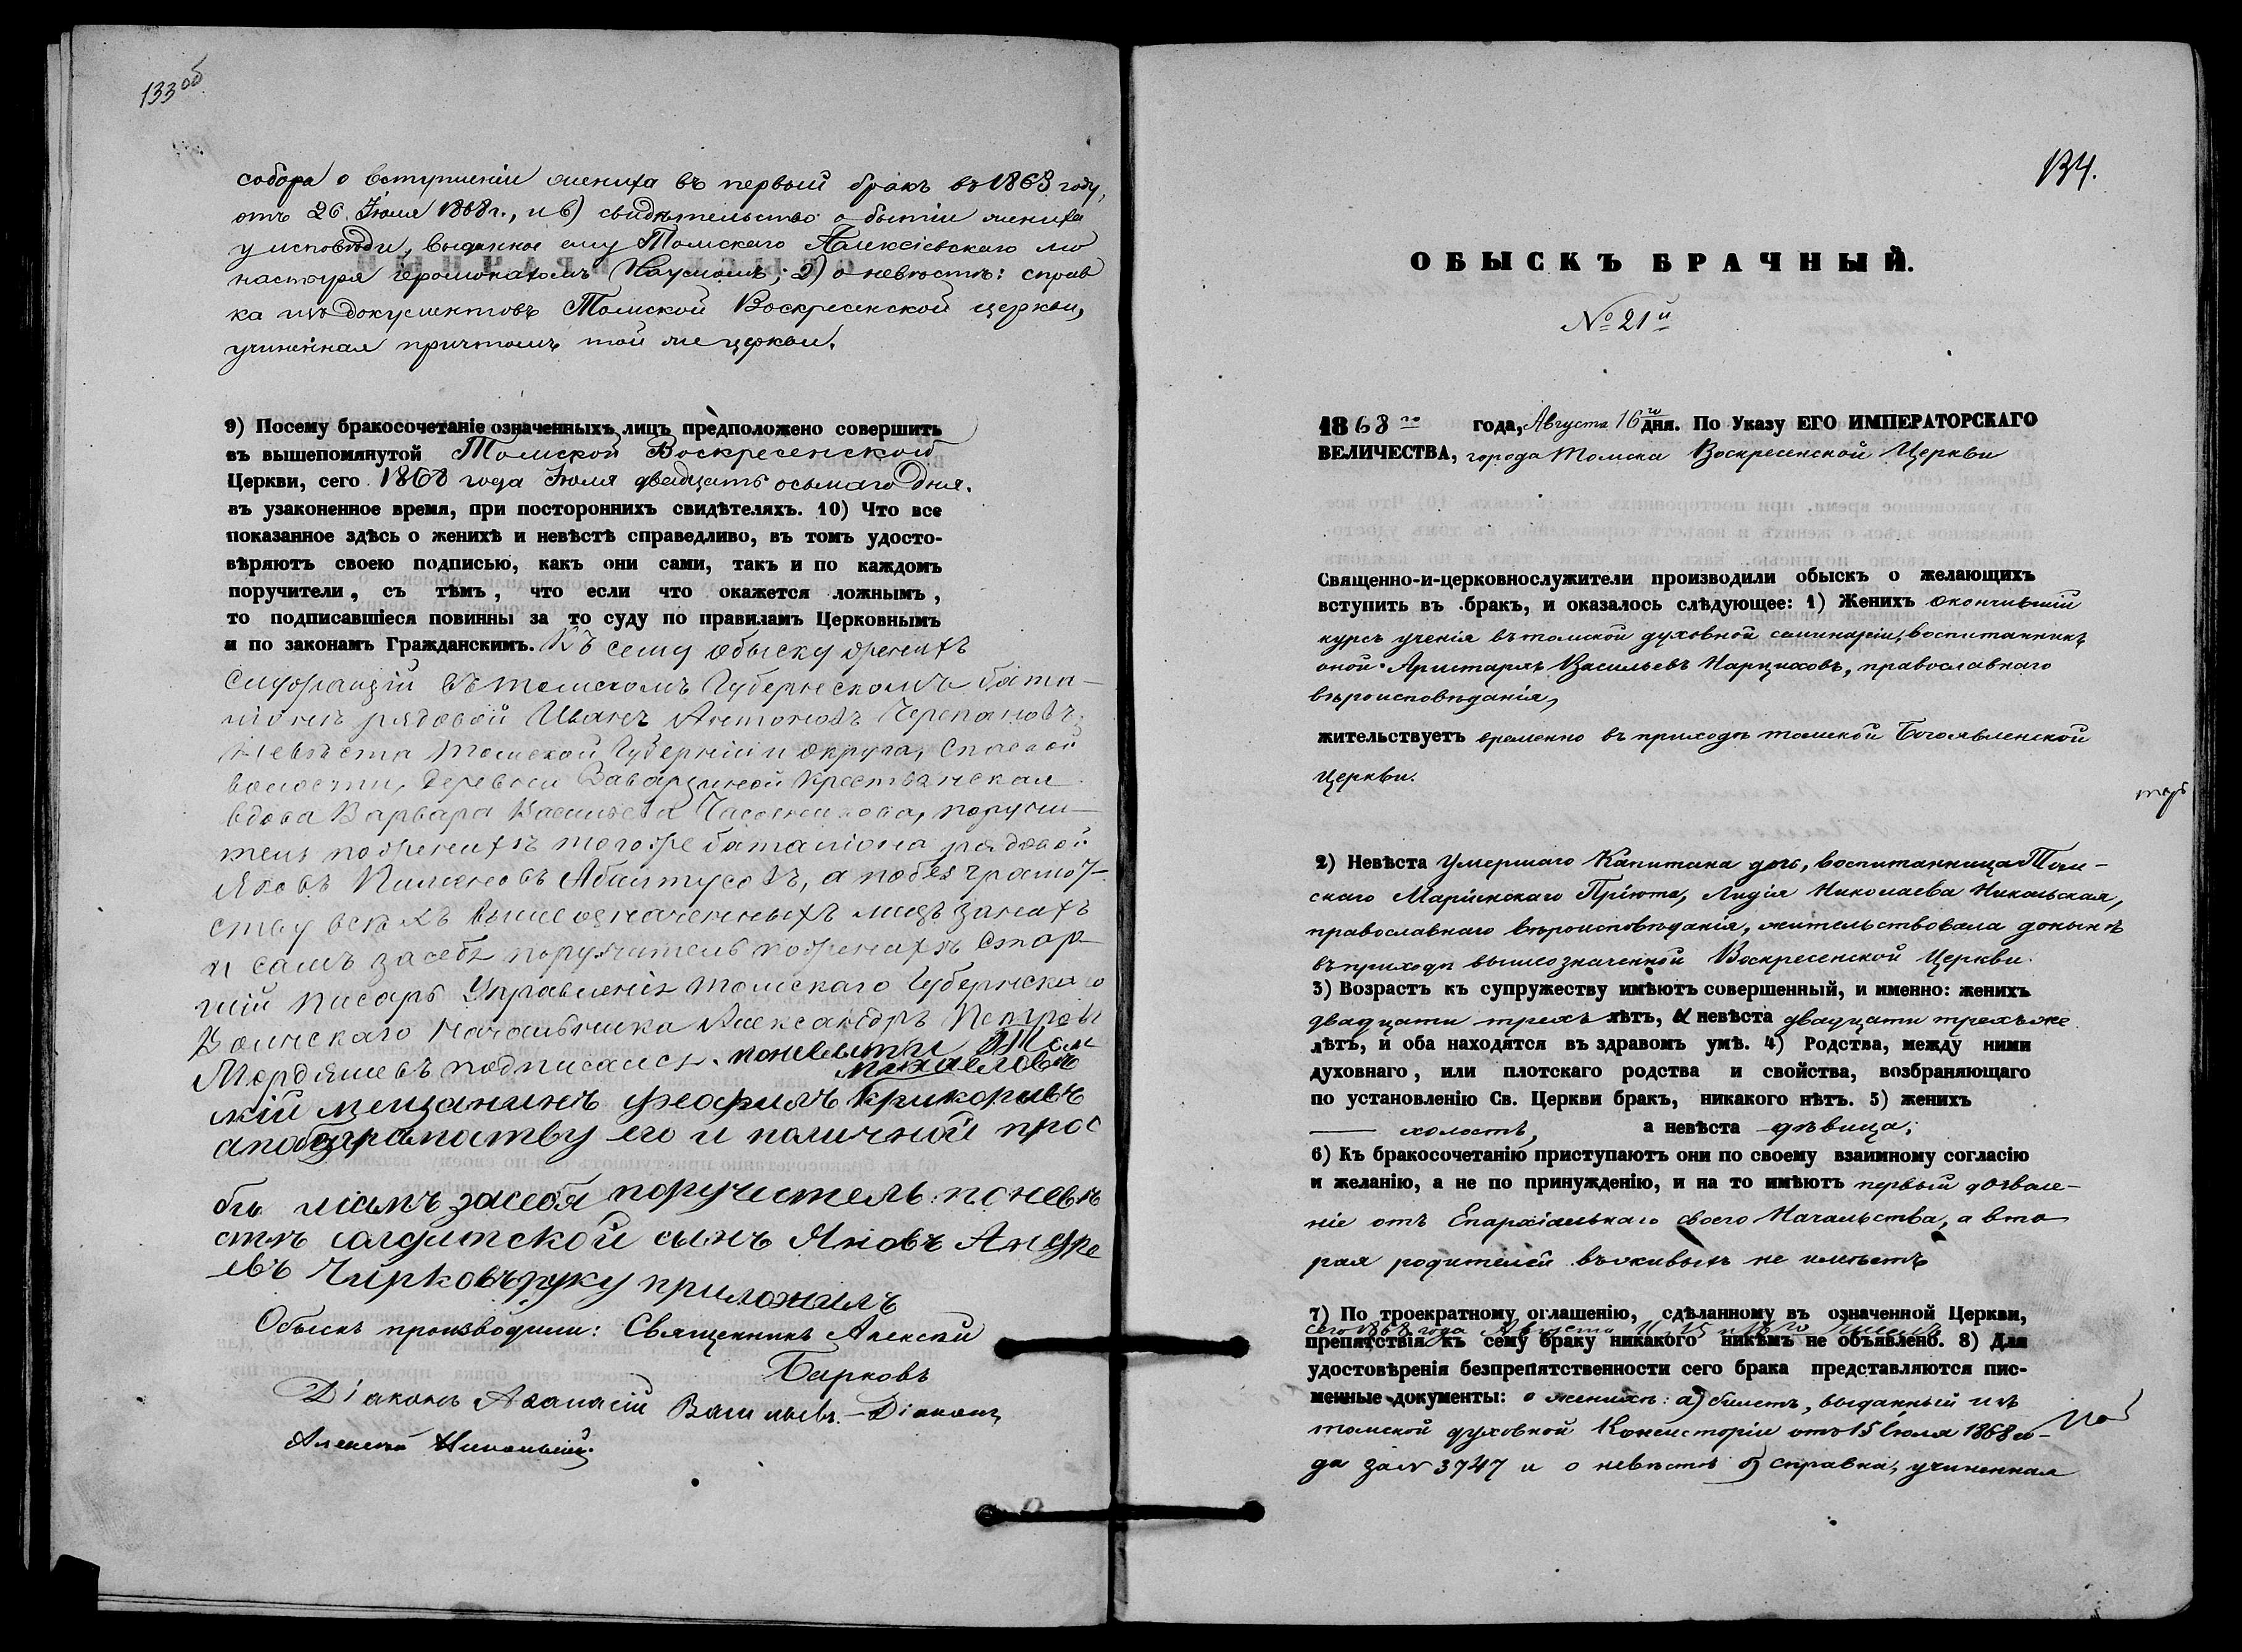 133 об
собора о вступленіи жениха въ первый бракъ въ 1863 году,
отъ 26 Іюля 1868 г., и в) свидѣтельство о бытіи жениха
у исповѣди, выданное ему Томскаго Алексіевскаго мо
настыря іеромонахомъ Наумомъ; 2) о невѣстѣ: справ
ка изъ документовъ Томской Воскресенской церкви,
учиненная причтомъ той же церкви.
9) Посему бракосочетаніе означенныхъ лицъ предположено совершить
въ вышепомянутой Томской Воскресенской
Церкви, сего 1868 года Іюля двадцать осьмаго дня.
въ узаконенное время, при постороннихъ свидѣтеляхъ. 10) Что все
показанное здѣсь о женихѣ и невѣстѣ справедливо, въ томъ удосто-
вѣряютъ своею подписью, какъ они сами, такъ и по каждомъ
поручители, съ тѣмъ, что если что окажется ложнымъ,
то подписавшіеся повинны за то суду по правиламъ Церковнымъ
и по законамъ Гражданскимъ. Къ сему обыску женихъ
въ томскомъ Губернскомъ бата-
ліонѣ рядовой Иванъ Антоновъ Черепановъ,
Невѣста Томской Губерніи и округа, Спаской
волости, деревни Заварзиной крестьянская
вдова Варвара Васильева поручи-
тель по женихѣ того же баталіона рядовой
Яковъ а по безграмот-
ству всѣхъ вышеозначенныхъ лицъ за нихъ
и самъ за себя поручитель по женихѣ Стар-
шій писарь Управленія Томскаго Губернскаго
Воинскаго Начальника Александръ Петровъ
Мордяшевъ подписался. по невѣстѣ Том-
Михаиловъ
скій мещанинъ
а по безграмотству его и по личной прос
бы и самъ за себя поручитель по невѣ
стѣ солдатской сынъ Яковъ Андре
евъ Чирковъ руку приложилъ
Обыскъ производили: Священникъ Алексѣй
Барковъ
Діаконъ Аѳанасій Васильевъ. Діаконъ
Алексѣй Никольскій.
134.
ОБЫСКЪ БРАЧНЫЙ.
№ 21й
1868го года, Августа 16го дня. По Указу ЕГО ИМПЕРАТОРСКАГО
ВЕЛИЧЕСТВА, города Томска Воскресенской Церкви
Священно-и-церковнослужители производили обыскъ о желающихъ
вступить въ бракъ, и оказалось слѣдующее: 1) Женихъ окончившій
курсъ ученія въ томской духовной семинаріи, воспитанникъ
оной Аристархъ Васильевъ Нарциссовъ, православнаго
вѣроисповѣданія,
жительствуетъ временно въ приходѣ томской Богоявленской
Церкви.
2) Невѣста умершаго Капитана дочь, воспитанница Том-
скаго Маріинскаго Пріюта, Лидія Николаева Никольская,
православнаго вѣроисповѣданія, жительствовала донынѣ
въ приходѣ вышеозначенной Воскресенской Церкви.
3) Возрастъ къ супружеству имѣютъ совершенный, и именно: женихъ
двадцати трехъ лѣтъ, а невѣста двадцати трехъ же
лѣтъ, и оба находятся въ здравомъ умѣ. 4) Родства, между ними
духовнаго, или плотскаго родства и свойства, возбраняющаго
по установленію Св. Церкви бракъ, никакого нѣтъ. 5) женихъ
холостъ, а невѣста дѣвица;
6) Къ бракосочетанію приступаютъ они по своему взаимному согласію
и желанію, а не по принужденію, и на то имѣютъ первый дозволе-
ніе отъ Епархіальнаго своего Начальства, а вто
рая родителей въ живыхъ не имѣетъ
7) По троекратному оглашенію, сдѣланному въ означенной Церкви,
сего 1868 года Августа
препятствія къ сему браку никакого никѣмъ не объявлено. 8) Для
удостовѣренія безпрепятственности сего брака представляются пис-
менные документы: о женихѣ: а) билетъ, выданный изъ
томской духовной Консисторіи отъ 15 Іюля 1868 го-
да за № 3747 и о невѣстѣ б) справка, учиненная